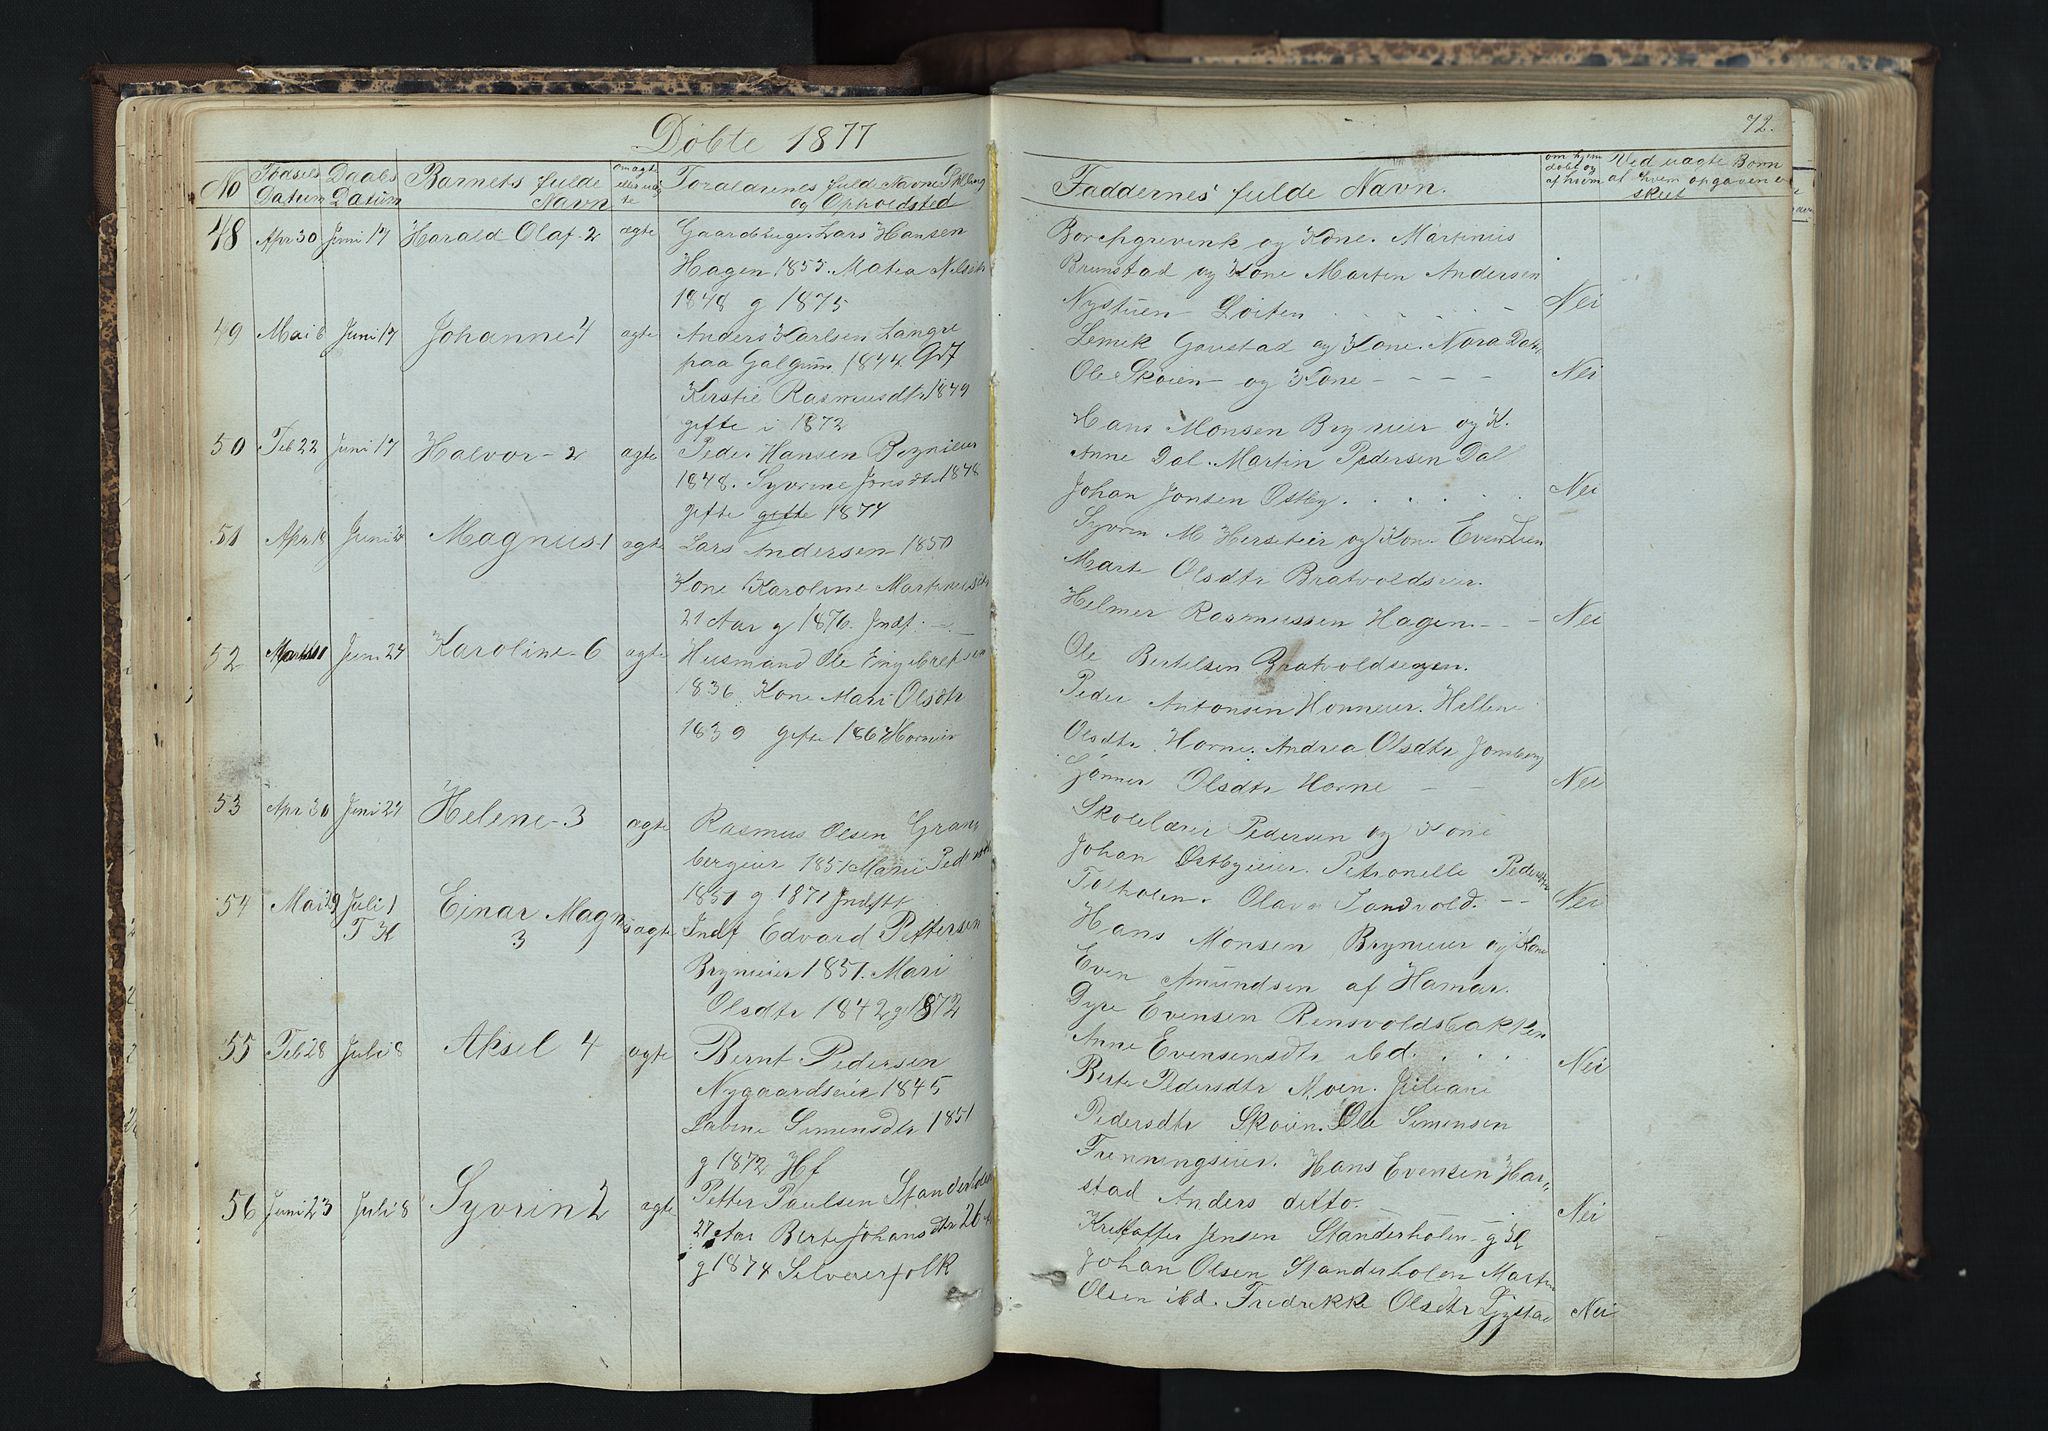 Döbte 1877
No
Fødsels Datum
Daabs Datum
Barnets fulde Navn
om ægte eller uægte
Foraldrenes fulde Navne Stilling og Opholdsted
48 Apr 30 Juni 17 Harald Olaf - 2 ægte Gaardbruger Lars Hansen
Hagen 1855. Matea Nilsdtr
1848 g 1875
49 Mai 6 Juni 17 Johanne 4 ægte Anders Karlsen Langre
paa Galgum 1844
Kerstie Rasmusdtr 1849
gifte i 1872
50 Feb 22 Juni 17 Halvor - 2 agte Peder Hansen Brynieier
1848. Syvrine Jonsdtr 1848
gifte gifte 1874
51 Apr 18 Juni 24 Magnus - 1 agte Lars Andersen 1850
Kone Karoline Martinusdtr
21 Aar g 1876. Indf.
52 Juni 24 Karoline - 6 agte Husmand Ole Engebretsen
1836 Kone Mari Olsdtr
1839 gifte 1864 Horneier
53 Apr 30 Juni 24 Helene - 3 agte Rasmus Olsen Gran
bergeier 1851 Marie Pedersdtr
1851 g 1871 Indstr
54 Mai 29 Juli 1 Einar Magnus agte Indf Edvard Pettersen
T K 3
Brynieier 1851. Mari
Olsdtr 1842 g 1872
55 Feb 28 Juli 8 Aksel 4 agte Bernt Pedersen
Nygaardseier 1845
Labine Simensdtr 1851
g 1872 Hf
56 Juni 23 Juli 8 Syvrin 2 agte Petter Paulsen Standerholen
27 Aar Berte Johansdtr 26
g 1874 Selveierfolk
72.
Faddernes fulde Navn.
om hjem døbt og af hvem
Ved uægte Børn af hvem opgaven er skeet
Borchgrevink og Kone. Martinus
Brunstad og Kone Marten Andersen
Nystuen Löiten Nei
Lemik Gaustad og Kone. Nora Dal
Ole Skoien og Kone - - - - Nei
Hans Monsen Brynieier og K.
Anne Dal. Martin Pedersen Dal
Johan Jonsen Ostby. Nei
Syvren M Herseteier og Kone Even Lien
Marte Olsdtr Bratvoldseier.
Helmer Rasmussen Hagen - - - Nei
Ole Bertelsen Bratvoldsegen.
Peder Antonsen Horneier. Hellene
Olsdtr Horne. Andrea Olsdtr Jonsberg
Gönner Olsdtr Horne - - Nei
Skolelærer Pedersen og Kone
Johan Østbyieier. Petronelle Pedersdtr
Olava Sandvold. - - Nei
Hans Monsen Brynieier og Kone
Even Amundsen af Hamar.
Dyre Evensen Rensvoldsbakken
Anne Evensensdtr ibd. Nei
Berte Pedersdtr Moen. Juliane
Pedersdtr Skoien. Ole Simensen
Frenningseier. Hans Evensen Har
stad Anders ditto. Nei
Kristoffer Jensen Standerholen g K
Johan Olsen Standerholen Martin
Olsen ibd. Fredrikke Olsdtr Nei